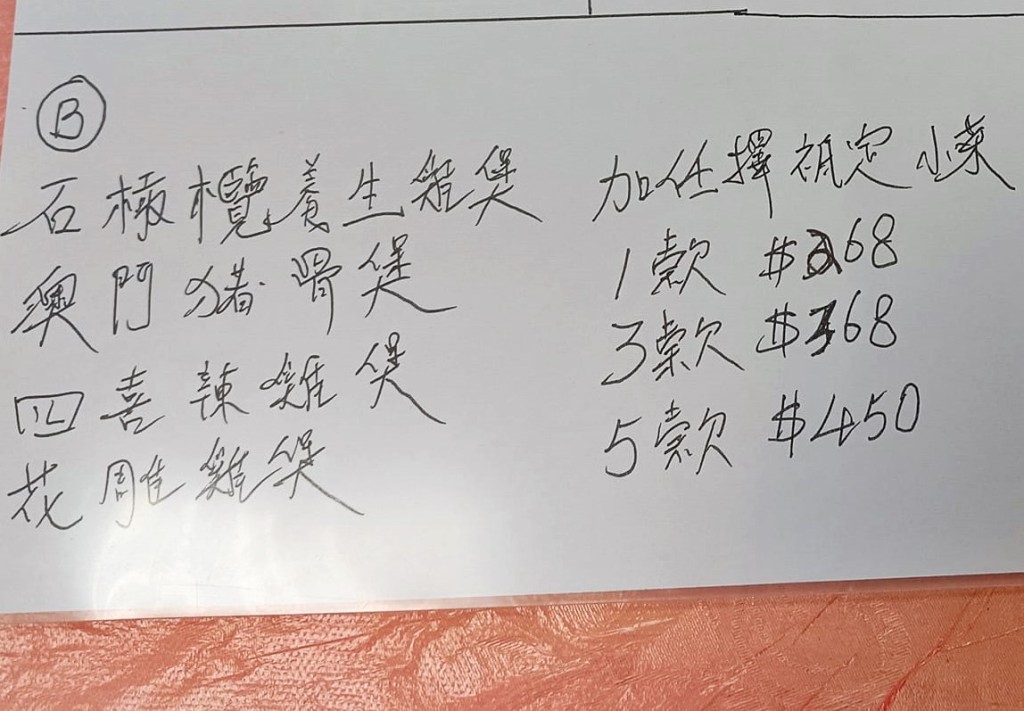 B
石橄欖養生雞煲
澳門豬骨煲
四喜辣雞煲
花雕雞煲
加任擇祇定小菜
1款 $268
3款 $368
5款 $450